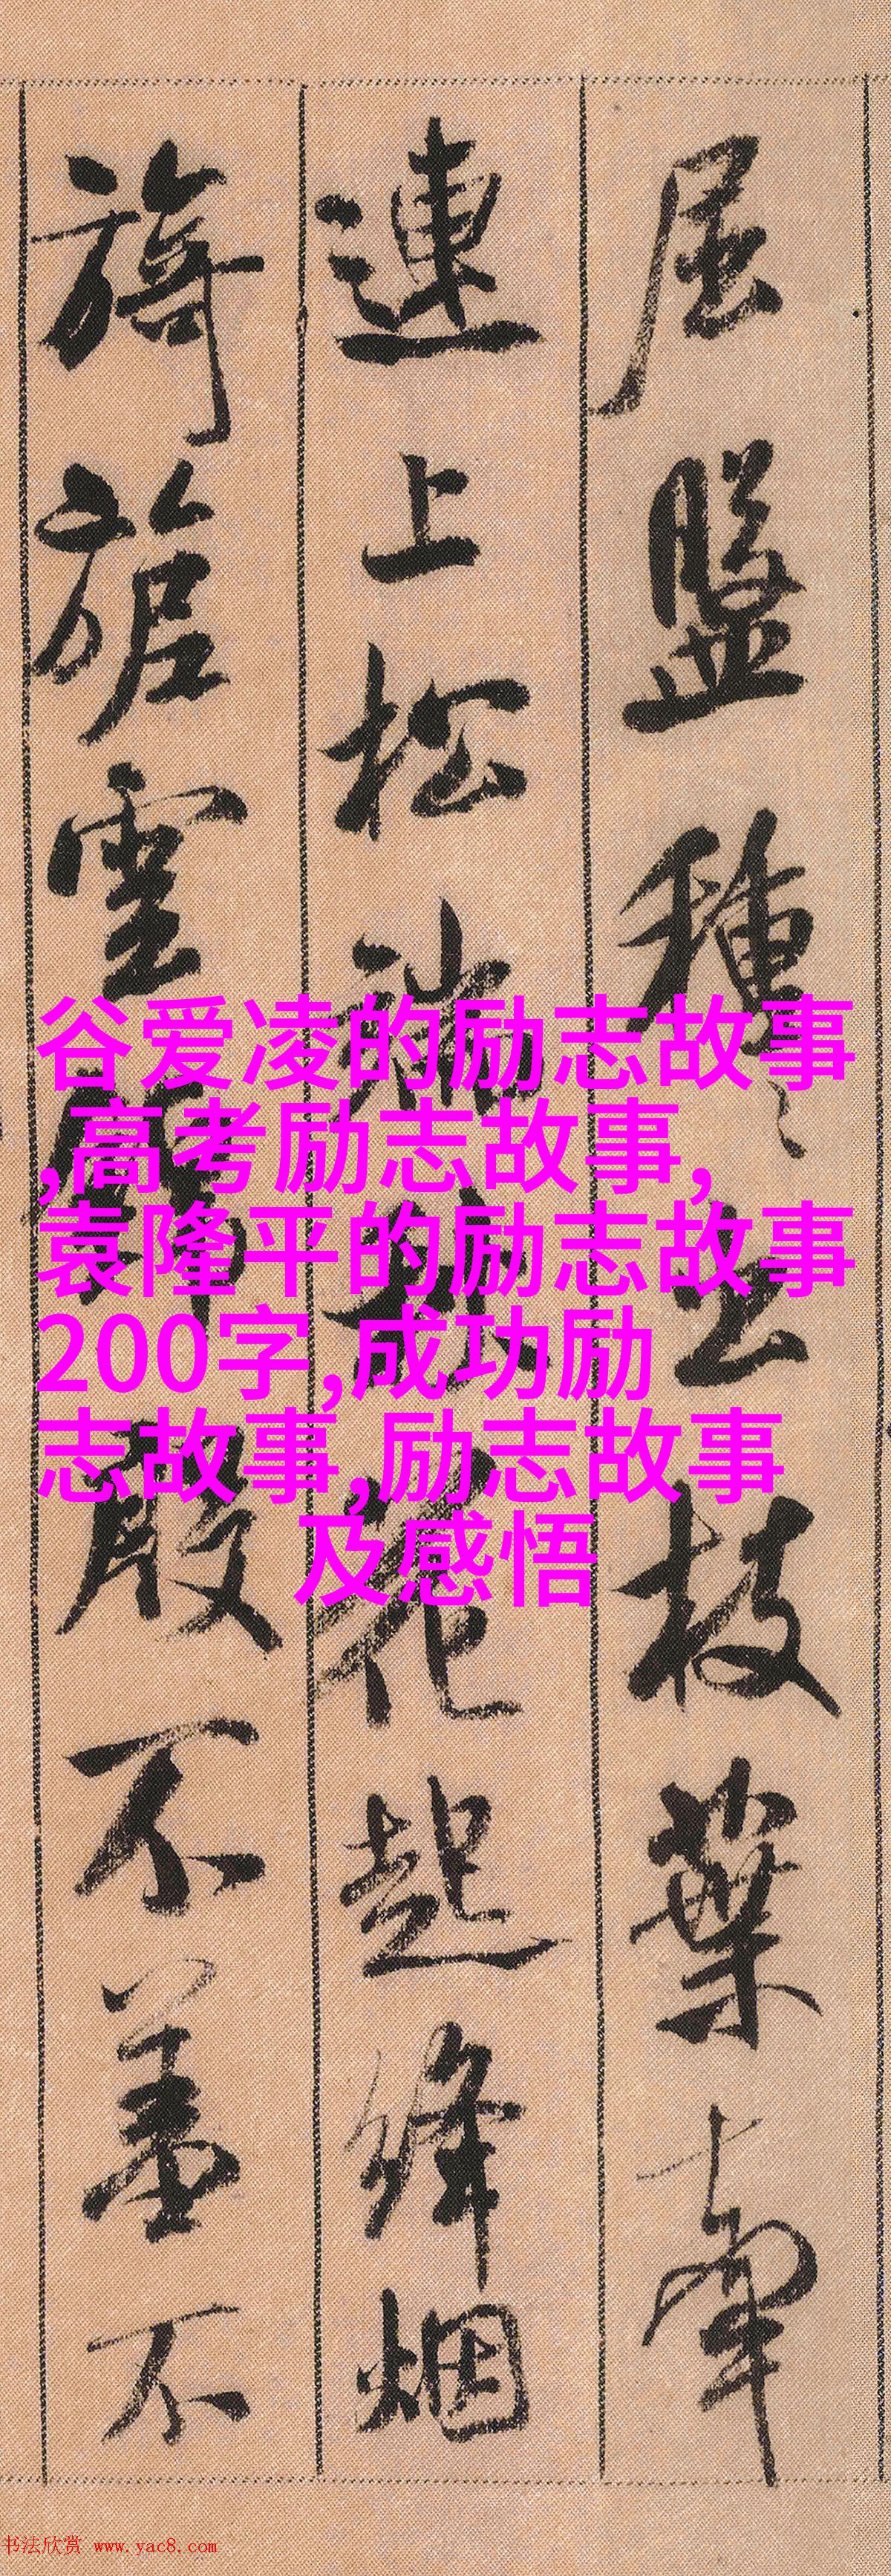 屈盤種種上枝葉牽
連上松端秋花起絳烟
旖旎雲錦殷不羞不
谷爱凌的励志故事
,高考励志故事,
袁隆平的励志故事
200字,成功励
志故事,励志故事
及感悟
书法欣赏 www.yac8.com